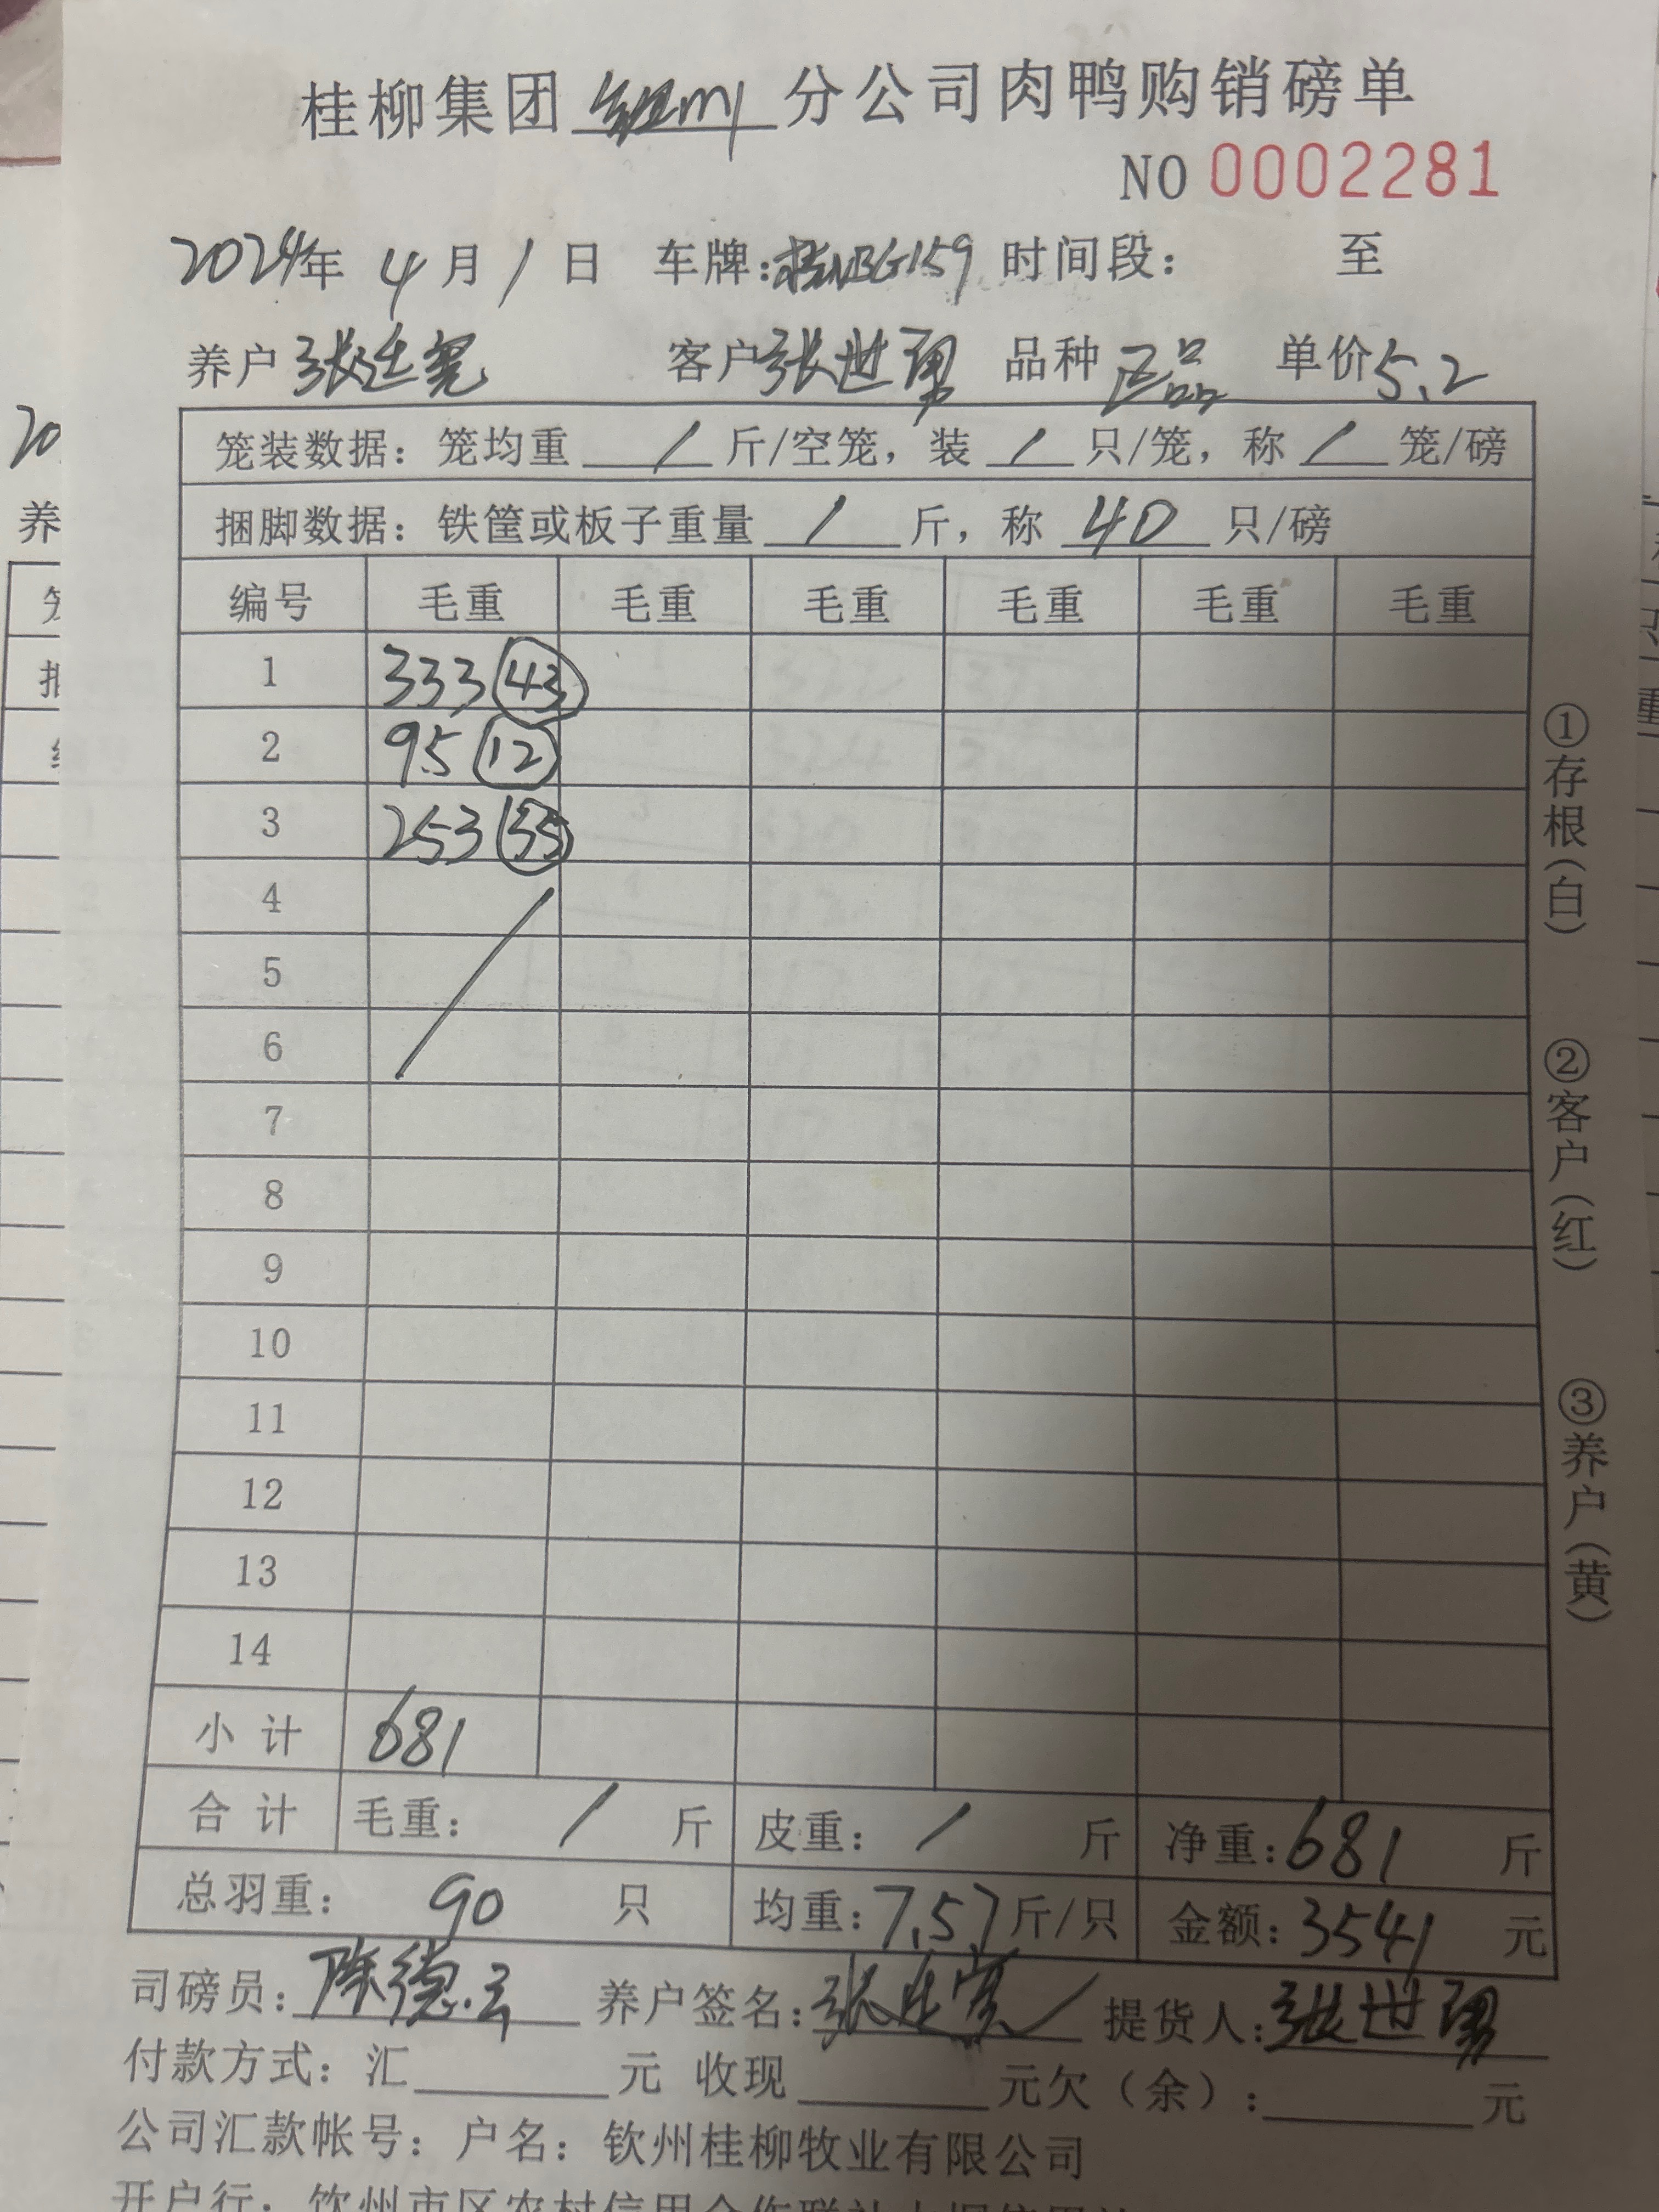 桂柳集团 钦州 分公司肉鸭购销磅单
NO 0002281
2024年 4月 1日 车牌:桂NBG159 时间段: 至
养户 张廷宽 客户 张世勇 品种 正品 单价 5.2
笼装数据:笼均重 / 斤/空笼,装 / 只/笼,称 / 笼/磅
捆脚数据:铁筐或板子重量 / 斤,称 40 只/磅
编号 毛重 毛重 毛重 毛重 毛重 毛重
1 333 43
2 95 12
3 253 35
4
5
6
7
8
9
10
11
12
13
14
小计 681
合计 毛重: / 斤 皮重: / 斤 净重:681 斤
总羽重: 90 只 均重:7.57斤/只 金额:3541 元
司磅员:陈德云 养户签名:张廷宽 提货人:张世勇
付款方式:汇 元 收现 元欠(余): 元
公司汇款帐号:户名:钦州桂柳牧业有限公司
开户行:钦州市区农村信用合作联社
①存根(白)
②客户(红)
③养户(黄)
20
养